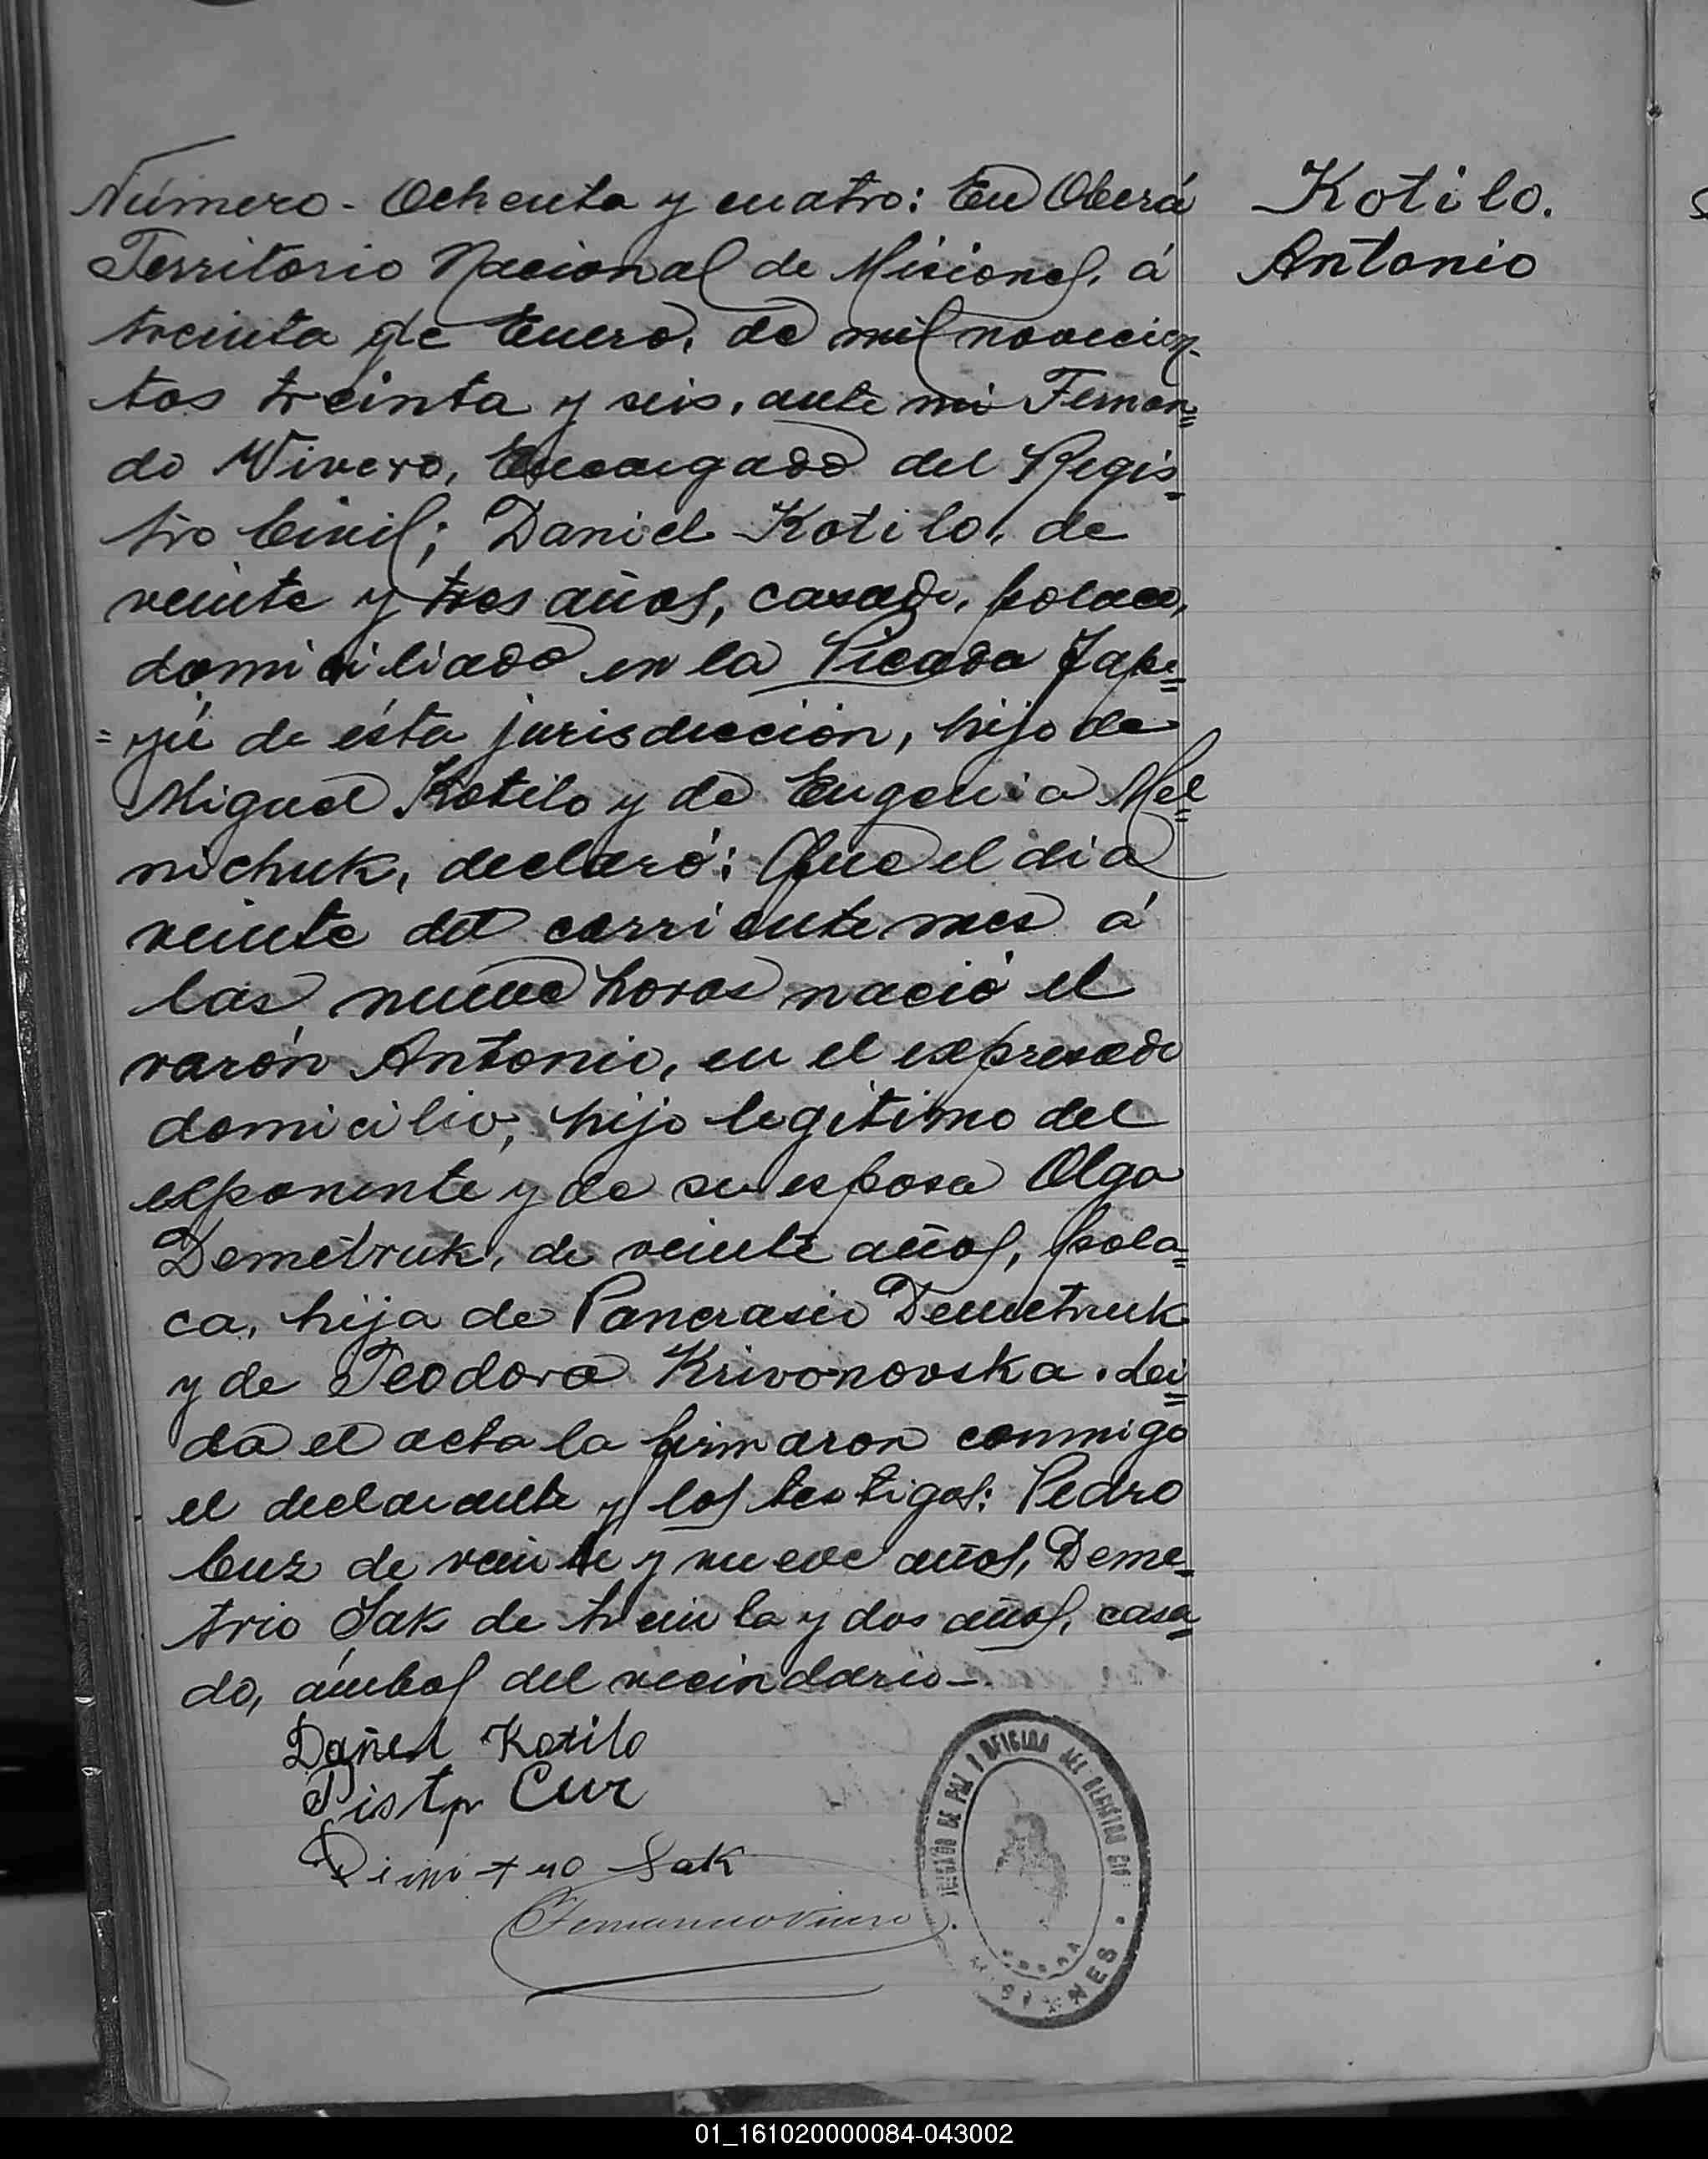 Número - Ochenta y cuatro: En Oberá
Territorio Nacional de Misiones, á
treinta de Enero, de mil novecien-
tos treinta y seis, ante mi Fernan=
do Vivero, Encargado del Regis=
tro Civil; Daniel Kotilo, de
veinte y tres años, casado, polaco,
domiciliado en la Picada Yape=
=yú de ésta jurisdicción, hijo de
Miguel Kotilo y de Eugenia Mel=
nichuk, declaró: Que el dia
veinte del corriente mes á
las nueve horas nació el
varón Antonio, en el expresado
domicilio, hijo legítimo del
exponente y de su esposa Olga
Demetruk, de veinte años, pola=
ca, hija de Pancrasio Demetruk
y de Teodora Krivonovska. Lei=
da el acta la firmaron conmigo
el declarante y los testigos: Pedro
Cuz de veinte y nueve años, Deme=
trio Sak de treinta y dos años, casa=
do, ámbos del vecindario-.
Dañel Kotilo
Cur
Dimitro Sak
Fernando Vivero
JUZGADO DE PAZ Y OFICINA DEL REGISTRO CIVIL
MISIONES
Kotilo.
Antonio
01_161020000084-043002